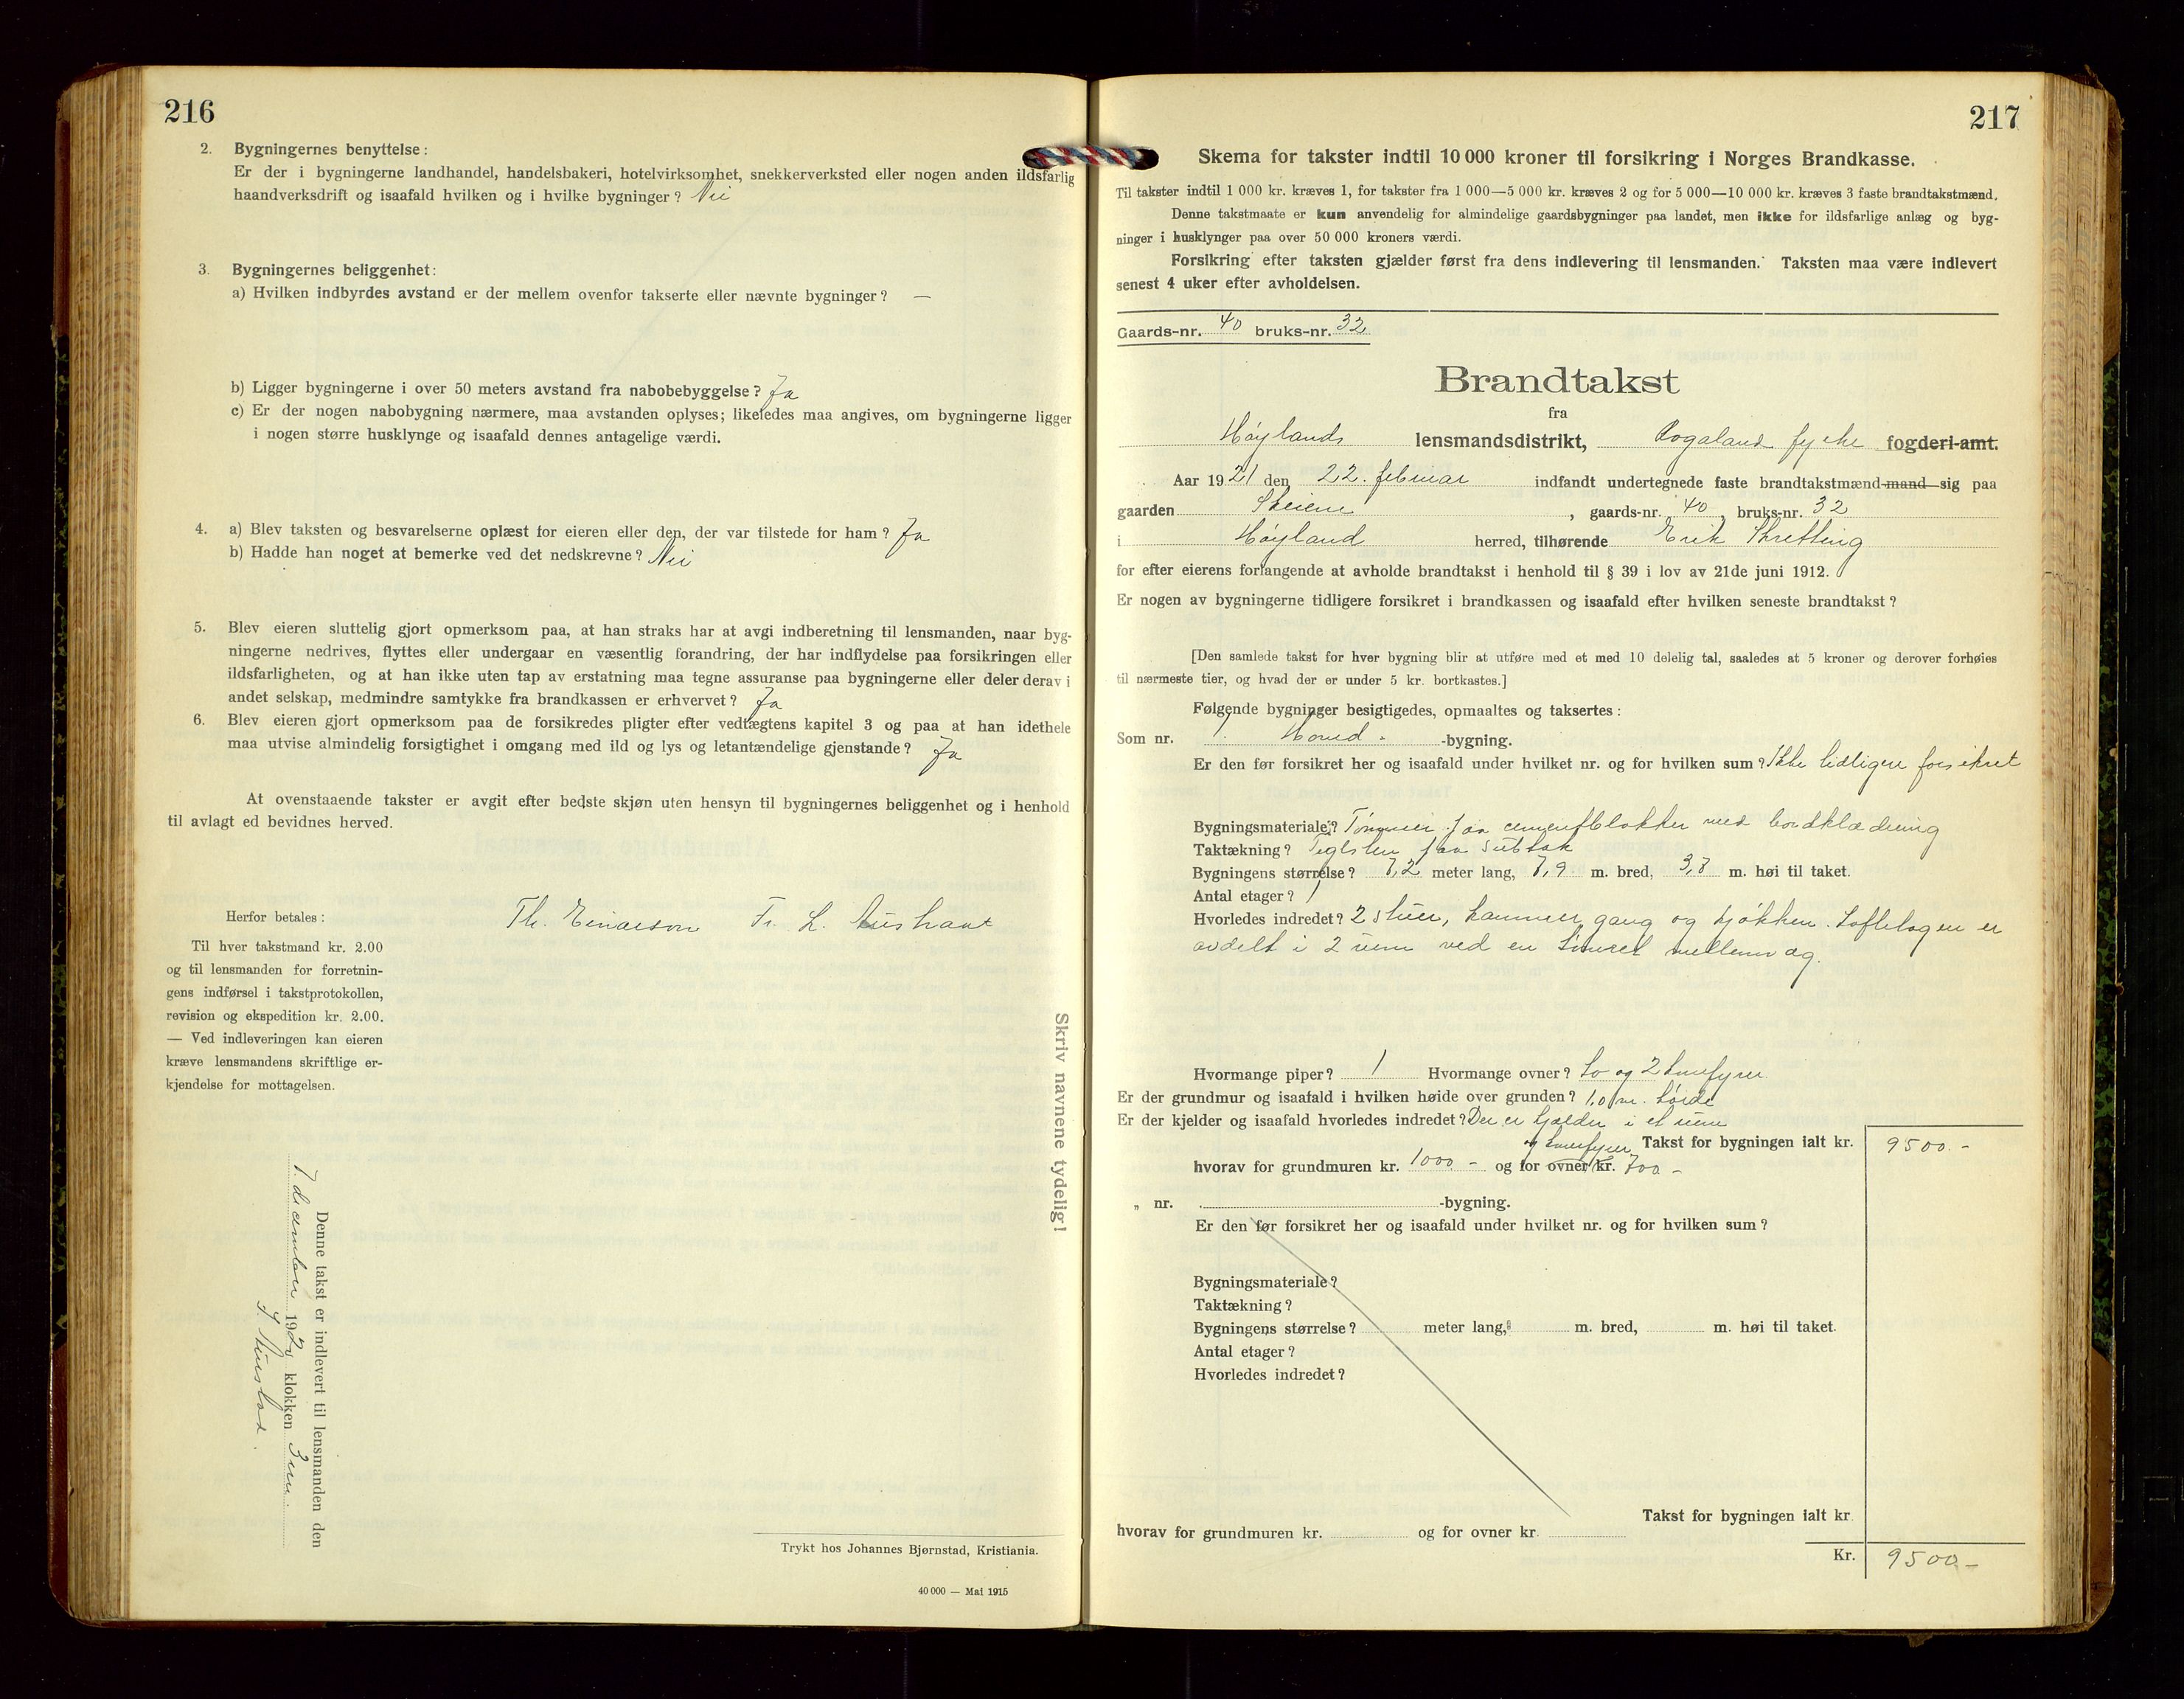 216
2. Bygningernes benyttelse:
Er der i bygningerne landhandel, handelsbakeri, hotelvirksomhet, snekkerverksted eller nogen anden ildsfarlig
haandverksdrift og isaafald hvilken og i hvilke bygninger? Nei
3. Bygningernes beliggenhet:
a) Hvilken indbyrdes avstand er der mellem ovenfor takserte eller nævnte bygninger? —
b) Ligger bygningerne i over 50 meters avstand fra nabobebyggelse? Ja
c) Er der nogen nabobygning nærmere, maa avstanden oplyses; likeledes maa angives, om bygningerne ligger
i nogen større husklynge og isaafald dennes antagelige værdi.
4. a) Blev taksten og besvarelserne oplæst for eieren eller den, der var tilstede for ham? Ja
b) Hadde han noget at bemerke ved det nedskrevne? Nei
5. Blev eieren sluttelig gjort opmerksom paa, at han straks har at avgi indberetning til lensmanden, naar byg-
ningerne nedrives, flyttes eller undergaar en væsentlig forandring, der har indflydelse paa forsikringen eller
ildsfarligheten, og at han ikke uten tap av erstatning maa tegne assuranse paa bygningerne eller deler derav i
andet selskap, medmindre samtykke fra brandkassen er erhvervet? Ja
6. Blev eieren gjort opmerksom paa de forsikredes pligter efter vedtægtens kapitel 3 og paa at han idethele
maa utvise almindelig forsigtighet i omgang med ild og lys og letantændelige gjenstande? Ja
At ovenstaaende takster er avgit efter bedste skjøn uten hensyn til bygningernes beliggenhet og i henhold
til avlagt ed bevidnes herved.
Th. Einarson Fr. L. Austraat
Herfor betales:
Til hver takstmand kr. 2.00
og til lensmanden for forretnin-
gens indførsel i takstprotokollen,
revision og ekspedition kr. 2.00.
— Ved indleveringen kan eieren
kræve lensmandens skriftlige er-
kjendelse for mottagelsen.
Skriv navnene tydelig!
Denne takst er indlevert til lensmanden den
7 december 192 klokken 3
Trykt hos Johannes Bjørnstad, Kristiania.
40 000 — Mai 1915
217
Skema for takster indtil 10 000 kroner til forsikring i Norges Brandkasse.
Til takster indtil 1 000 kr. kræves 1, for takster fra 1 000—5 000 kr. kræves 2 og for 5 000—10 000 kr. kræves 3 faste brandtakstmænd.
Denne takstmaate er kun anvendelig for almindelige gaardsbygninger paa landet, men ikke for ildsfarlige anlæg og byg-
ninger i husklynger paa over 50 000 kroners værdi.
Forsikring efter taksten gjælder først fra dens indlevering til lensmanden. Taksten maa være indlevert
senest 4 uker efter avholdelsen.
Gaards-nr. 40 bruks-nr. 32
Brandtakst
fra
Høylands lensmandsdistrikt, Rogaland fylke fogderi-amt.
Aar 1921 den 22. februar indfandt undertegnede faste brandtakstmænd-mand sig paa
gaarden Skeiene, gaards-nr. 40, bruks-nr. 32
i Høyland herred, tilhørende Erik Skretting
for efter eierens forlangende at avholde brandtakst i henhold til § 39 i lov av 21de juni 1912.
Er nogen av bygningerne tidligere forsikret i brandkassen og isaafald efter hvilken seneste brandtakst?
[Den samlede takst for hver bygning blir at utføre med et med 10 delelig tal, saaledes at 5 kroner og derover forhøies
til nærmeste tier, og hvad der er under 5 kr. bortkastes.]
Følgende bygninger besigtigedes, opmaaltes og taksertes:
Som nr. 1. Hoved - -bygning.
Er den før forsikret her og isaafald under hvilket nr. og for hvilken sum? Ikke tidligere forsikret
Bygningsmateriale? Tømmer paa cementblokker med bordklædning
Taktækning? Teglsten paa sutak
Bygningens størrelse? 7,2 meter lang, 7,9 m. bred, 3,8 m. høi til taket.
Antal etager? 1
Hvorledes indredet? 2 stuer, kammer, gang og kjøkken. Loftetagen er
avdelt i 2 rum ved en tømret mellemvæg.
Hvormange piper? 1 Hvormange ovner? To og 2 komfyrer
Er der grundmur og isaafald i hvilken høide over grunden? 1,0 m. høide
Er der kjelder og isaafald hvorledes indredet? Der er kjælder i et rum
og komfyrer Takst for bygningen ialt kr. 9500.-
hvorav for grundmuren kr. 1000 - og for ovner kr. 700 -
„ nr. -bygning.
Er den før forsikret her og isaafald under hvilket nr. og for hvilken sum?
Bygningsmateriale?
Taktækning?
Bygningens størrelse? meter lang, m. bred, m. høi til taket.
Antal etager?
Hvorledes indredet?
Takst for bygningen ialt kr.
hvorav for grundmuren kr. og for ovner kr.
Kr. 9500.-